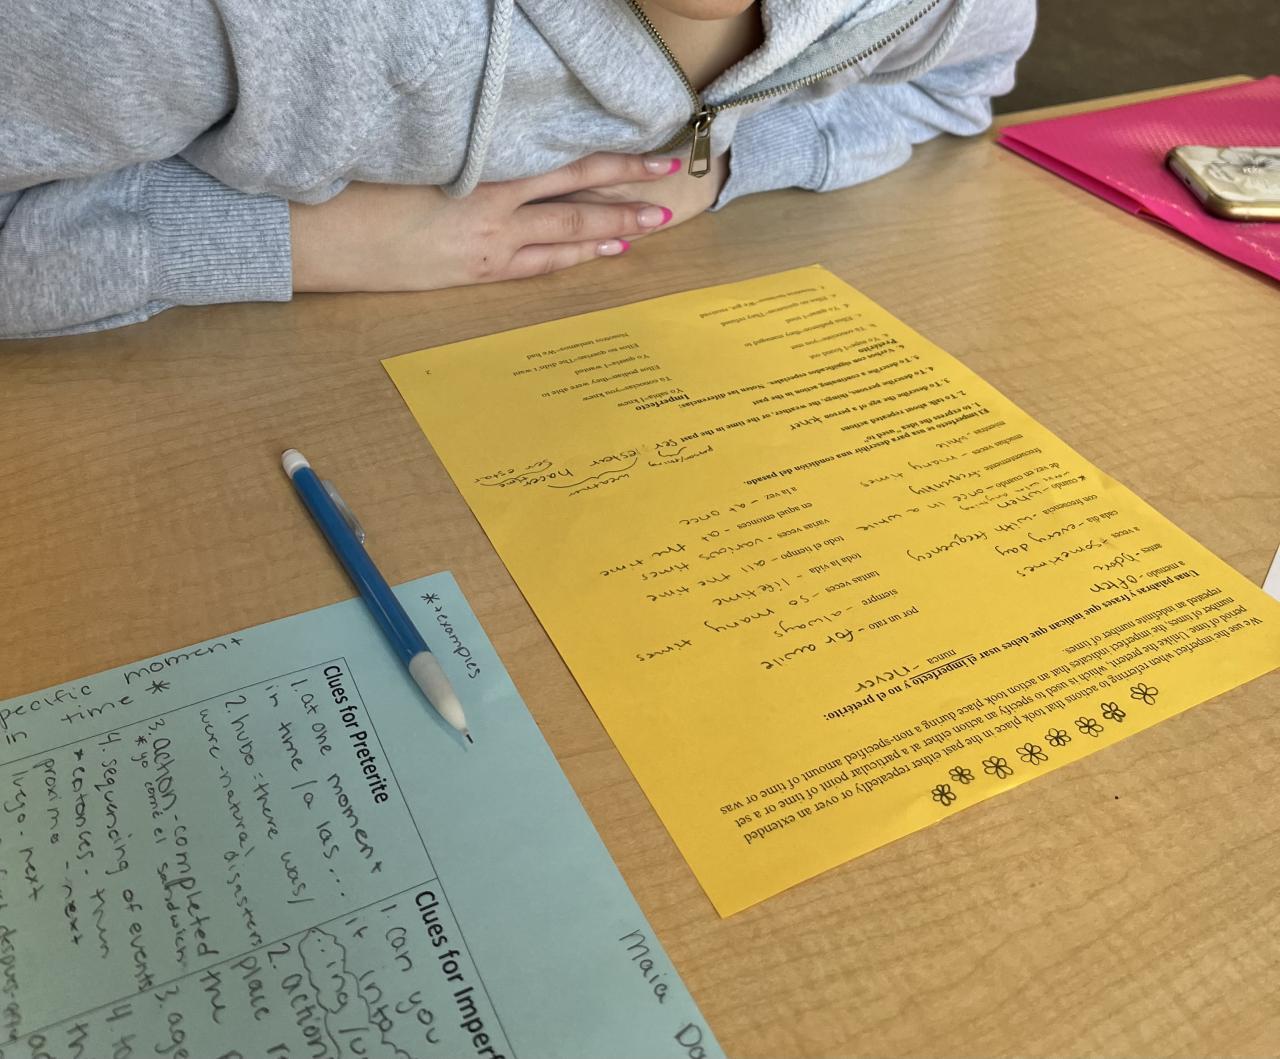 We use the imperfect when referring to actions that took place in the past either repeatedly or over an extended
period of time. Unlike the preterit, which is used to specify an action either at a particular point of time or a set
number of times, the imperfect indicates that an action took place during a non-specified amount of time or was
repeated an indefinite number of times.
Unas palabras y frases que indican que debes usar el imperfecto y no el pretérito:
a menudo - often
nunca - never
antes
a veces *sometimes
por un rato - for awile
cada día - every day
siempre - always
con frecuencia - with frequency
tantas veces - so many times
*cuando - when
toda la vida - lifetime
de vez en cuando - once in a while
todo el tiempo - all the time
frecuentemente - frequently
varias veces - various times
muchas veces - many times
en aquel entonces - at the time
mientras - while
a la vez - at once
El imperfecto se usa para describir una condición del pasado.
1. to express the idea "used to"
2. To talk about repeated actions
3. To describe the age of a person tner
4. To describe persons, things, the weather, or the time in the past ser, estar
weather
hacer
time
ser estar
5. To describe a continuing action in the past
6. Verbos con significados especiales. Noten las diferencias:
Pretérito
Imperfecto
a. Yo supe-I found out
Yo sabía-I knew
b. Tú conociste-you met
Tú conocías-you knew
c. Ellos pudieron-they managed to
Ellos podían-they were able to
d. Yo quise-I tried
Yo quería-I wanted
e. Ellos no quisieron-They refused
Ellos no querían-The didn't want
f. Nosotros tuvimos-We got, received
Nosotros teníamos-We had
2
Maia
*+examples
pecific moment
time *
Clues for Preterite
1. at one moment
in time / a las ...
2. hubo = there was/
were - natural disasters
3. action - completed
* yo comí el sandwich
4. sequencing of events
* entonces - then
proximo - next
luego - next
Clues for Imperf
1. can you
2. action
place
3. age